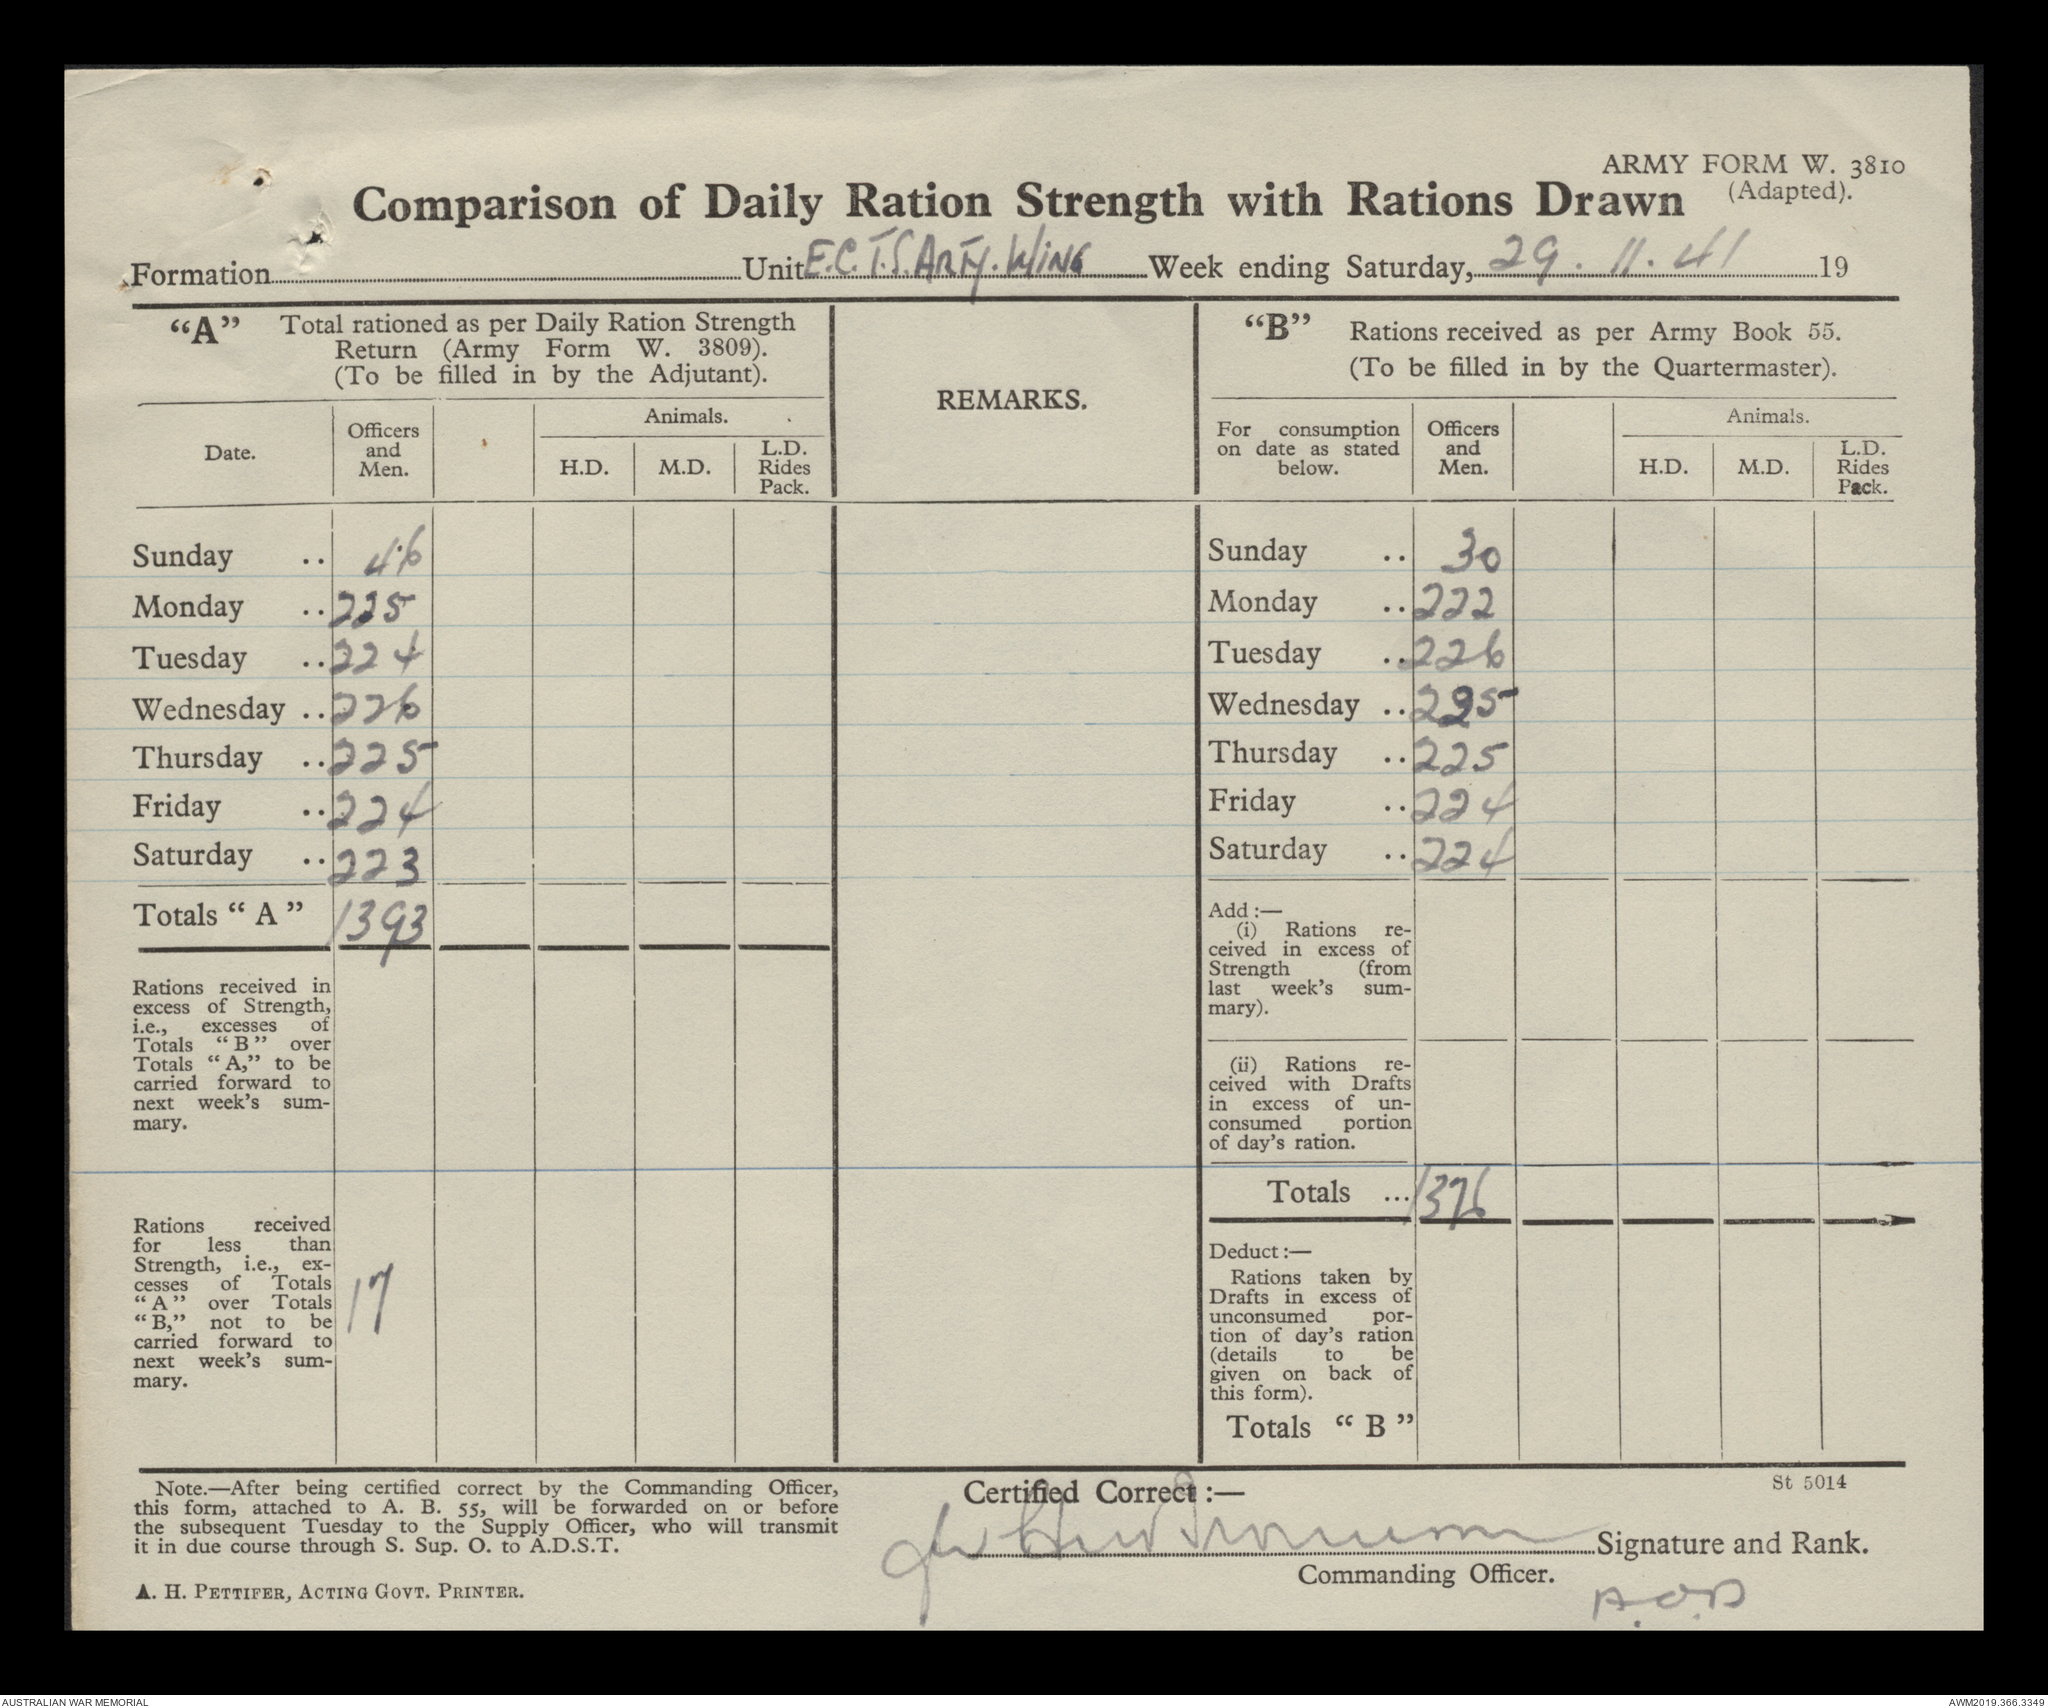 ARMY FORM W. 3810
(Adapted).
Comparison of Daily Ration Strength with Rations Drawn
Formation Unit E.C.T.S. ARTY. WING Week ending Saturday, 29.11.41 19
"A" Total rationed as per Daily Ration Strength
Return (Army Form W. 3809).
(To be filled in by the Adjutant).
REMARKS.
"B" Rations received as per Army Book 55.
(To be filled in by the Quartermaster).
Date.
Officers
and
Men.
Animals.
H.D. M.D. L.D.
Rides
Pack.
For consumption
on date as stated
below.
Officers
and
Men.
Animals.
H.D. M.D. L.D.
Rides
Pack.
Sunday .. 46
Monday .. 225
Tuesday .. 224
Wednesday .. 226
Thursday .. 225
Friday .. 224
Saturday .. 223
Totals "A" 1393
Rations received in
excess of Strength,
i.e., excesses of
Totals "B" over
Totals "A," to be
carried forward to
next week's sum-
mary.
Rations received
for less than
Strength, i.e., ex-
cesses of Totals
"A" over Totals
"B," not to be
carried forward to
next week's sum-
mary.
17
Sunday .. 30
Monday .. 222
Tuesday .. 226
Wednesday .. 225
Thursday .. 225
Friday .. 224
Saturday .. 224
Add :—
(i) Rations re-
ceived in excess of
Strength (from
last week's sum-
mary).
(ii) Rations re-
ceived with Drafts
in excess of un-
consumed portion
of day's ration.
Totals ... 1376
Deduct :—
Rations taken by
Drafts in excess of
unconsumed por-
tion of day's ration
(details to be
given on back of
this form).
Totals "B"
Note.—After being certified correct by the Commanding Officer,
this form, attached to A. B. 55, will be forwarded on or before
the subsequent Tuesday to the Supply Officer, who will transmit
it in due course through S. Sup. O. to A.D.S.T.
A. H. PETTIFER, ACTING GOVT. PRINTER.
St 5014
Certified Correct :—
Signature and Rank.
Commanding Officer.
AUSTRALIAN WAR MEMORIAL
AWM2019.366.3349